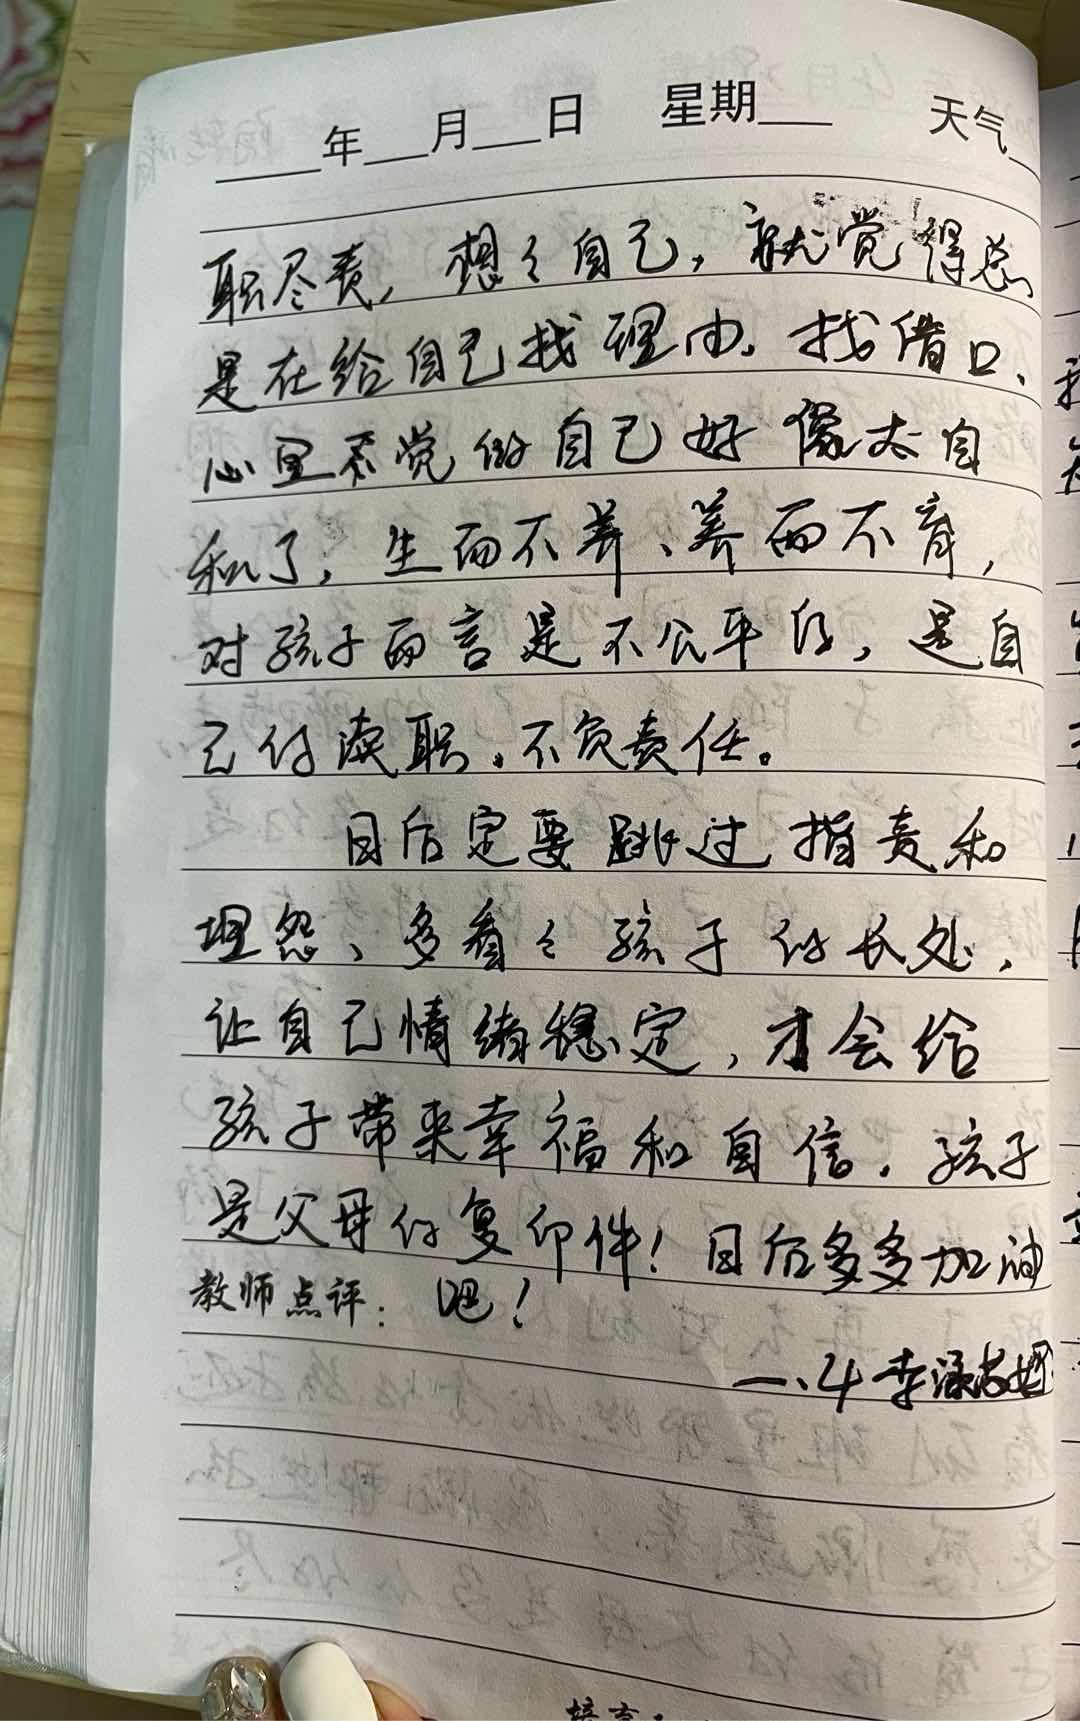 年 月 日 星期 天气
职尽责，想々自己，就觉得总
是在给自己找理由、找借口、
心里不觉得自己好像太自
私了，生而不养、养而不育，
对孩子而言是不公平的，是自
己的渎职、不负责任。
日后定要跳过指责和
埋怨、多看々孩子的长处，
让自己情绪稳定，才会给
孩子带来幸福和自信，孩子
是父母的复印件！日后多多加油
教师点评： 吧！
一、4 李